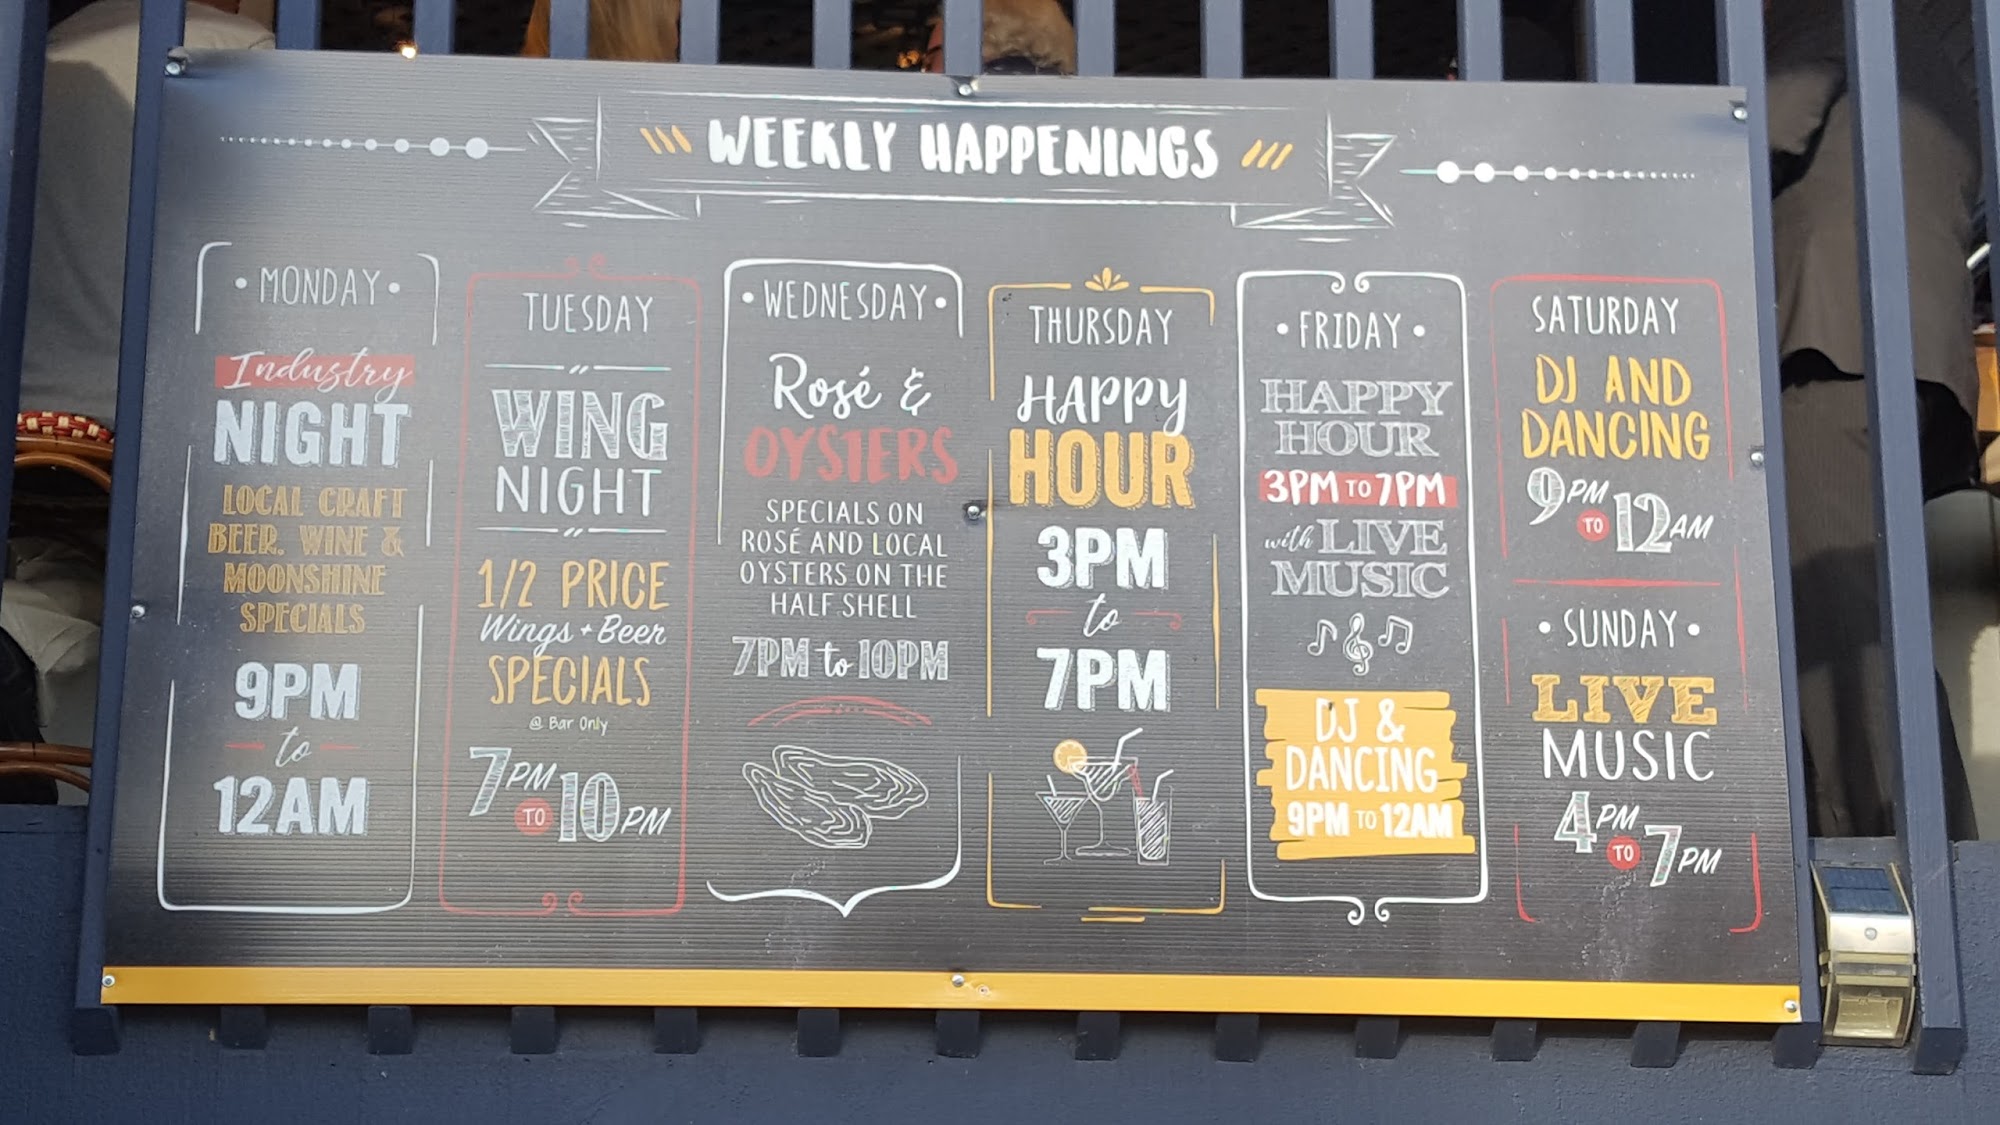 WEEKLY HAPPENINGS
MONDAY
Industry
NIGHT
LOCAL CRAFT
BEER, WINE &
MOONSHINE
SPECIALS
9PM
to
12AM
TUESDAY
WING
NIGHT
1/2 PRICE
Wings + Beer
SPECIALS
@ Bar Only
7PM
TO 10PM
WEDNESDAY
Rosé &
OYSTERS
SPECIALS ON
ROSÉ AND LOCAL
OYSTERS ON THE
HALF SHELL
7PM to 10PM
THURSDAY
HAPPY
HOUR
3PM
to
7PM
FRIDAY
HAPPY
HOUR
3PM TO 7PM
with LIVE
MUSIC
DJ &
DANCING
9PM TO 12AM
SATURDAY
DJ AND
DANCING
9PM
TO 12AM
SUNDAY
LIVE
MUSIC
4PM
TO 7PM